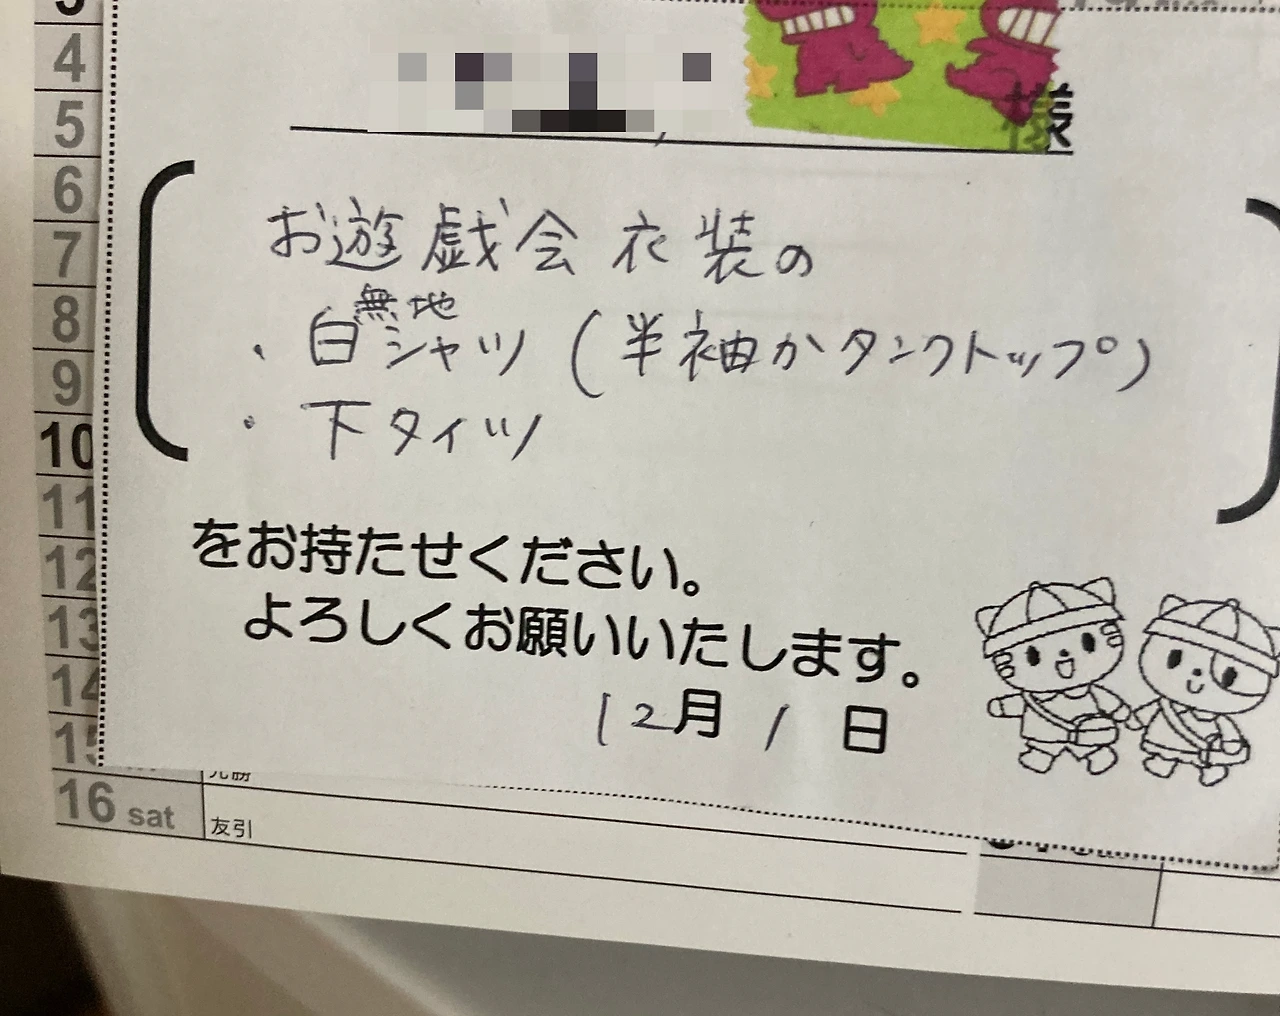 4
5
6
7
8
9
10
11
12
13
14
15
16 sat
友引
様
お遊戯会衣装の
・白無地シャツ(半袖かタンクトップ)
・下タイツ
をお持たせください。
よろしくお願いいたします。
12月1日